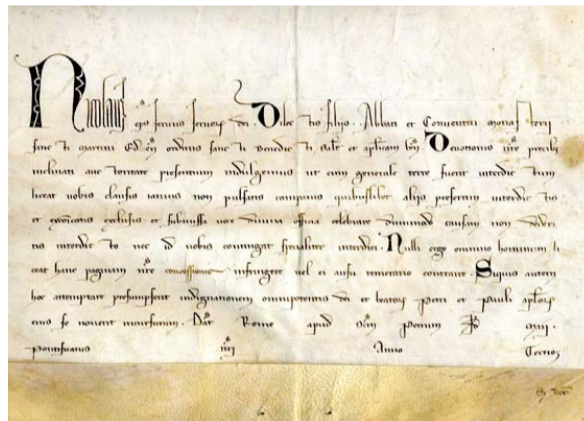 Nicolaus ep̄s seruus seruoꝝ dei. Dilectis filijs .. Abbati et Conuentui monasterij
sancti martini ordinis sancti Benedicti Salt̄ et aplicam bn̄. Deuotionis ur̄e precibus
inclinati auctoritate presentium indulgemus ut cum generale terre fuerit interdictum
liceat uobis clausis ianuis non pulsatis campanis quibuslibet alijs presertim interdictis
et excōicatis exclusis et submissa uoce diuina officia celebrare dummodo causam non dederitis
interdicto nec id uobis contingat specialiter interdici. Nulli ergo omnino hominum li
ceat hanc paginam nr̄e concessionis infringere uel ei ausu temerario contraire. Siquis autem
hoc attemptare presumpserit indignationem omnipotentis dei et beatoꝝ Petri et Pauli aploꝝ
eius se nouerit incursurum. Dat̄ Rome apud Sm̄ Petrum
Pontificatus nr̄i Anno Tertio